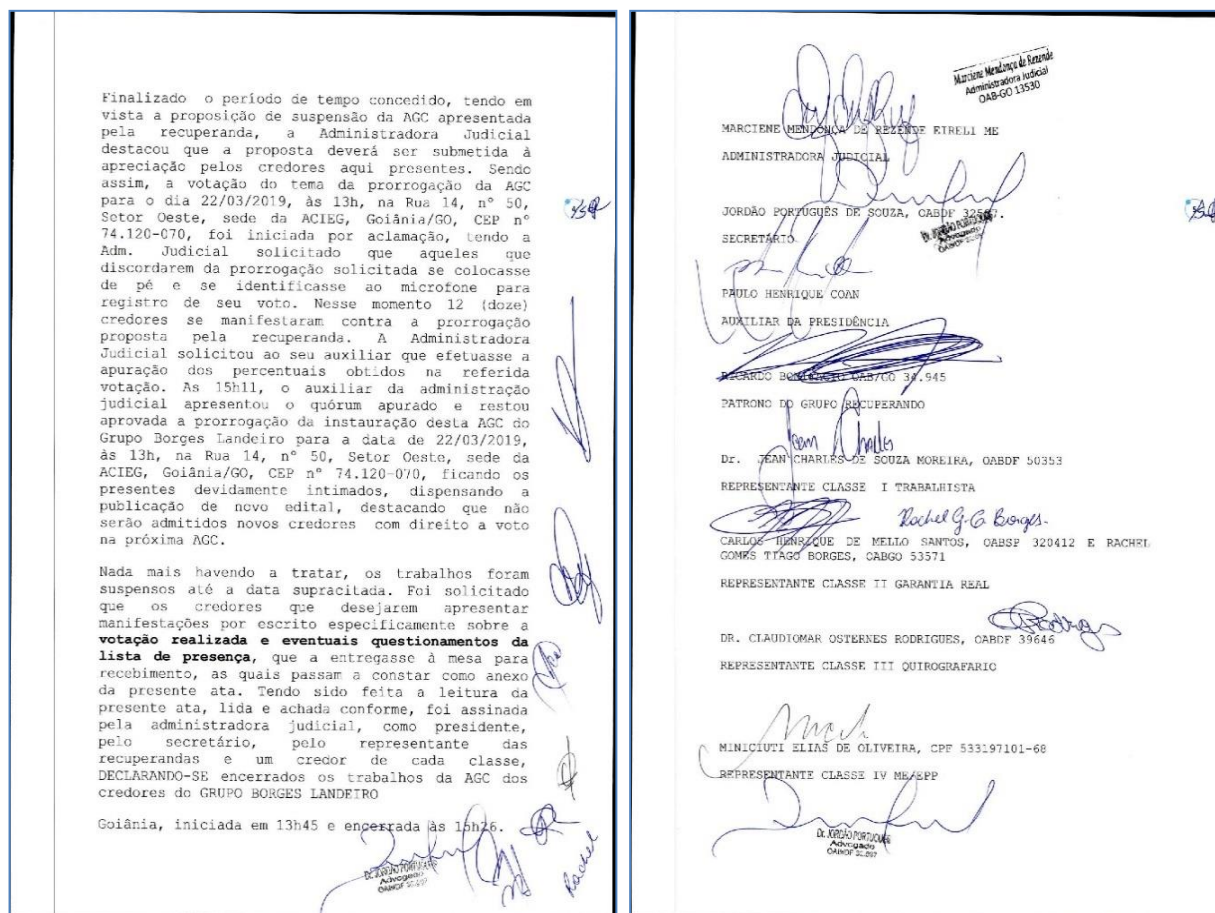 Finalizado o período de tempo concedido, tendo em
vista a proposição de suspensão da AGC apresentada
pela recuperanda, a Administradora Judicial
destacou que a proposta deverá ser submetida à
apreciação pelos credores aqui presentes. Sendo
assim, a votação do tema da prorrogação da AGC
para o dia 22/03/2019, às 13h, na Rua 14, nº 50,
Setor Oeste, sede da ACIEG, Goiânia/GO, CEP nº
74.120-070, foi iniciada por aclamação, tendo a
Adm. Judicial solicitado que aqueles que
discordarem da prorrogação solicitada se colocasse
de pé e se identificasse ao microfone para
registro de seu voto. Nesse momento 12 (doze)
credores se manifestaram contra a prorrogação
proposta pela recuperanda. A Administradora
Judicial solicitou ao seu auxiliar que efetuasse a
apuração dos percentuais obtidos na referida
votação. As 15h11, o auxiliar da administração
judicial apresentou o quórum apurado e restou
aprovada a prorrogação da instauração desta AGC do
Grupo Borges Landeiro para a data de 22/03/2019,
às 13h, na Rua 14, nº 50, Setor Oeste, sede da
ACIEG, Goiânia/GO, CEP nº 74.120-070, ficando os
presentes devidamente intimados, dispensando a
publicação de novo edital, destacando que não
serão admitidos novos credores com direito a voto
na próxima AGC.
Nada mais havendo a tratar, os trabalhos foram
suspensos até a data supracitada. Foi solicitado
que os credores que desejarem apresentar
manifestações por escrito especificamente sobre a
votação realizada e eventuais questionamentos da
lista de presença, que a entregasse à mesa para
recebimento, as quais passam a constar como anexo
da presente ata. Tendo sido feita a leitura da
presente ata, lida e achada conforme, foi assinada
pela administradora judicial, como presidente,
pelo secretário, pelo representante das
recuperandas e um credor de cada classe,
DECLARANDO-SE encerrados os trabalhos da AGC dos
credores do GRUPO BORGES LANDEIRO
Goiânia, iniciada em 13h45 e encerrada às 15h26.
Dr. JORDÃO PORTUGUÊS
Advogado
Rachel
Marciene Mendonça de Rezende
Administradora Judicial
OAB-GO 13530
MARCIENE MENDONÇA DE REZENDE EIRELI ME
ADMINISTRADORA JUDICIAL
JORDÃO PORTUGUÊS DE SOUZA, OABDF
Dr. JORDÃO PORTUGUÊS
Advogado
SECRETÁRIO
PAULO HENRIQUE COAN
AUXILIAR DA PRESIDÊNCIA
RICARDO OAB/GO 34.945
PATRONO DO GRUPO RECUPERANDO
Jean Charles
Dr. JEAN CHARLES DE SOUZA MOREIRA, OABDF 50353
REPRESENTANTE CLASSE I TRABALHISTA
Rachel G. G. Borges
CARLOS HENRIQUE DE MELLO SANTOS, OABSP 320412 E RACHEL
GOMES TIAGO BORGES, OABGO 53571
REPRESENTANTE CLASSE II GARANTIA REAL
DR. CLAUDIOMAR OSTERNES RODRIGUES, OABDF 39646
REPRESENTANTE CLASSE III QUIROGRAFARIO
MINICIUTI ELIAS DE OLIVEIRA, CPF 533197101-68
REPRESENTANTE CLASSE IV ME/EPP
Dr. JORDÃO PORTUGUÊS
Advogado